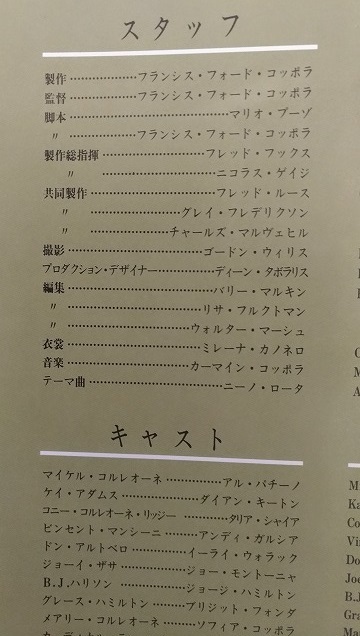 スタッフ
製作………………フランシス・フォード・コッポラ
監督………………フランシス・フォード・コッポラ
脚本………………………………マリオ・プーゾ
〃 ………………フランシス・フォード・コッポラ
製作総指揮………………………フレッド・フックス
〃 ………………………ニコラス・ゲイジ
共同製作…………………………フレッド・ルース
〃 ……………………グレイ・フレデリクソン
〃 …………………チャールズ・マルヴェヒル
撮影………………………………ゴードン・ウィリス
プロダクション・デザイナー……………ディーン・タボラリス
編集………………………………バリー・マルキン
〃 ……………………………リサ・フルクトマン
〃 …………………………ウォルター・マーシュ
衣裳……………………………ミレーナ・カノネロ
音楽……………………………カーマイン・コッポラ
テーマ曲……………………………ニーノ・ロータ
キャスト
マイケル・コルレオーネ……………アル・パチーノ
ケイ・アダムス……………………ダイアン・キートン
コニー・コルレオーネ・リッジー…………タリア・シャイア
ビンセント・マンシーニ…………アンディ・ガルシア
ドン・アルトベロ………………イーライ・ウォラック
ジョーイ・ザサ………………ジョー・モントーニャ
B.J.ハリソン…………………ジョージ・ハミルトン
グレース・ハミルトン…………ブリジット・フォンダ
メアリー・コルレオーネ…………ソフィア・コッポラ